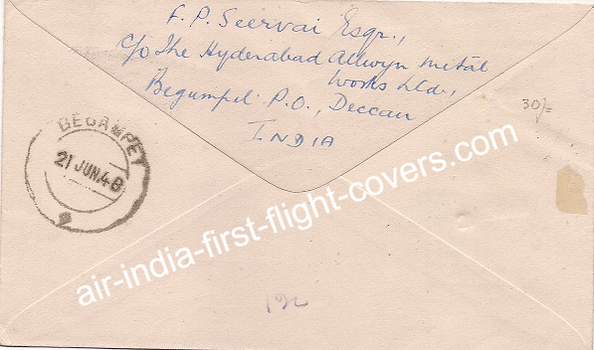 F. P. Seervai Esqr.,
c/o The Hyderabad Allwyn Metal
Works Ltd.,
Begumpet P.O., Deccan
INDIA
30/=
BEGAMPET
21 JUN.48
air-india-first-flight-covers.com